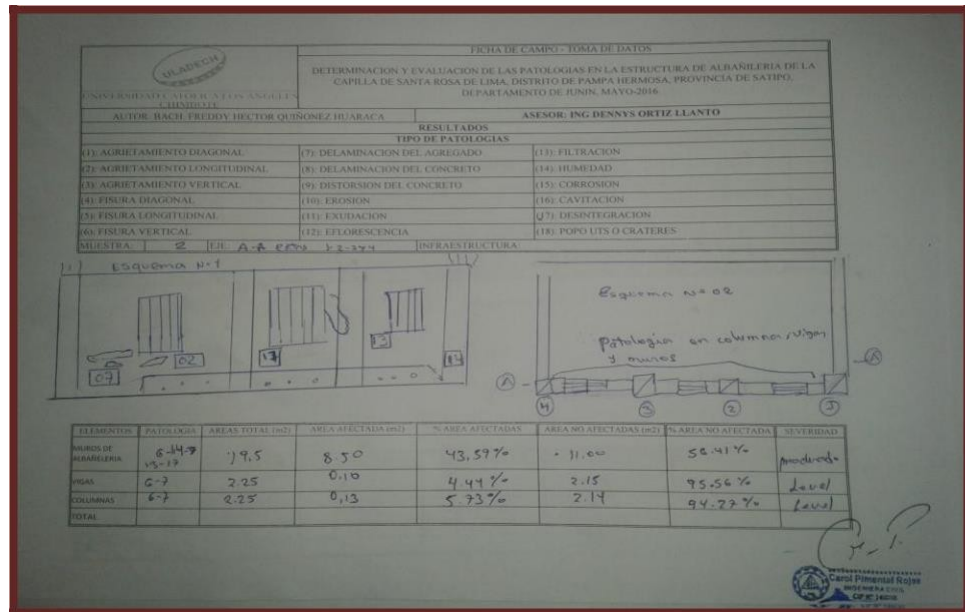 ULADECH
FICHA DE CAMPO - TOMA DE DATOS
DETERMINACION Y EVALUACION DE LAS PATOLOGIAS EN LA ESTRUCTURA DE ALBAÑILERIA DE LA
CAPILLA DE SANTA ROSA DE LIMA, DISTRITO DE PAMPA HERMOSA, PROVINCIA DE SATIPO,
DEPARTAMENTO DE JUNIN, MAYO-2016
UNIVERSIDAD CATOLICA LOS ANGELES
CHIMBOTE
AUTOR: BACH. FREDDY HECTOR QUIÑONEZ HUARACA
ASESOR: ING DENNYS ORTIZ LLANTO
RESULTADOS
TIPO DE PATOLOGIAS
(1): AGRIETAMIENTO DIAGONAL (7): DELAMINACION DEL AGREGADO (13): FILTRACION
(2): AGRIETAMIENTO LONGITUDINAL (8): DELAMINACION DEL CONCRETO (14): HUMEDAD
(3): AGRIETAMIENTO VERTICAL (9): DISTORSION DEL CONCRETO (15): CORROSION
(4): FISURA DIAGONAL (10): EROSION (16): CAVITACION
(5): FISURA LONGITUDINAL (11): EXUDACION (17): DESINTEGRACION
(6): FISURA VERTICAL (12): EFLORESCENCIA (18): POPO UTS O CRATERES
MUESTRA: 2 EJE: A-A INFRAESTRUCTURA:
Esquema Nº1
Esquema Nº 02
Patologia en columnas, vigas
y muros
02
07
17
13
14
A
A
4
3
2
ELEMENTOS PATOLOGIA AREAS TOTAL (m2) AREA AFECTADA (m2) % AREA AFECTADAS AREA NO AFECTADAS (m2) % AREA NO AFECTADA SEVERIDAD
MUROS DE
ALBAÑILERIA 19.5 8.50 43.59% 11.00 56.41% moderado
13-17
VIGAS 6-7 2.25 0.10 4.44% 2.15 95.56%
COLUMNAS 6-7 2.25 0.13 5.73% 2.14 94.27%
TOTAL
Carol Pimentel Rojas
INGENIERA CIVIL